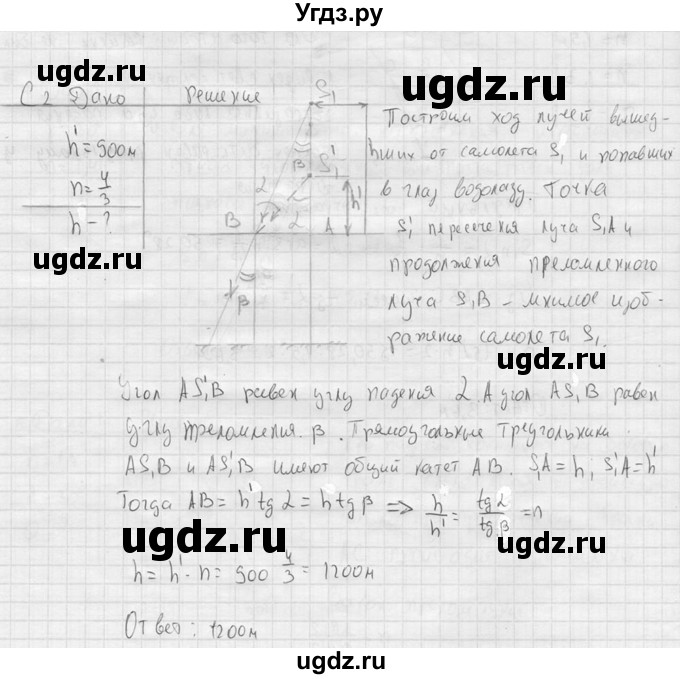 Угдз.ру
ugdz.ru
ugdz.ru
С2 Дано Решение
h' = 900м
n = 4/3
h - ?
ugdz.ru
S₁
S₁'
β
α
α
h'
B
A
β
Построим ход лучей вышед-
ших от самолета S₁ и попавших
в глаз водолазу. Точка
S₁' пересечения луча S₁A и
продолжения преломленного
луча S₁B - мнимое изоб-
ражение самолета S₁.
ugdz.ru
ugdz.ru
Угол AS₁'B равен углу падения α. А угол AS₁B равен
углу преломления β. Прямоугольные треугольники
AS₁B и AS₁'B имеют общий катет AB. S₁A = h; S₁'A = h'
Тогда AB = h' tg α = h tg β => h/h' = tg α/tg β = n
ugdz.ru
ugdz.ru
h = h' · n = 900 4/3 = 1200м
Ответ: 1200м
ugdz.ru
ugdz.ru